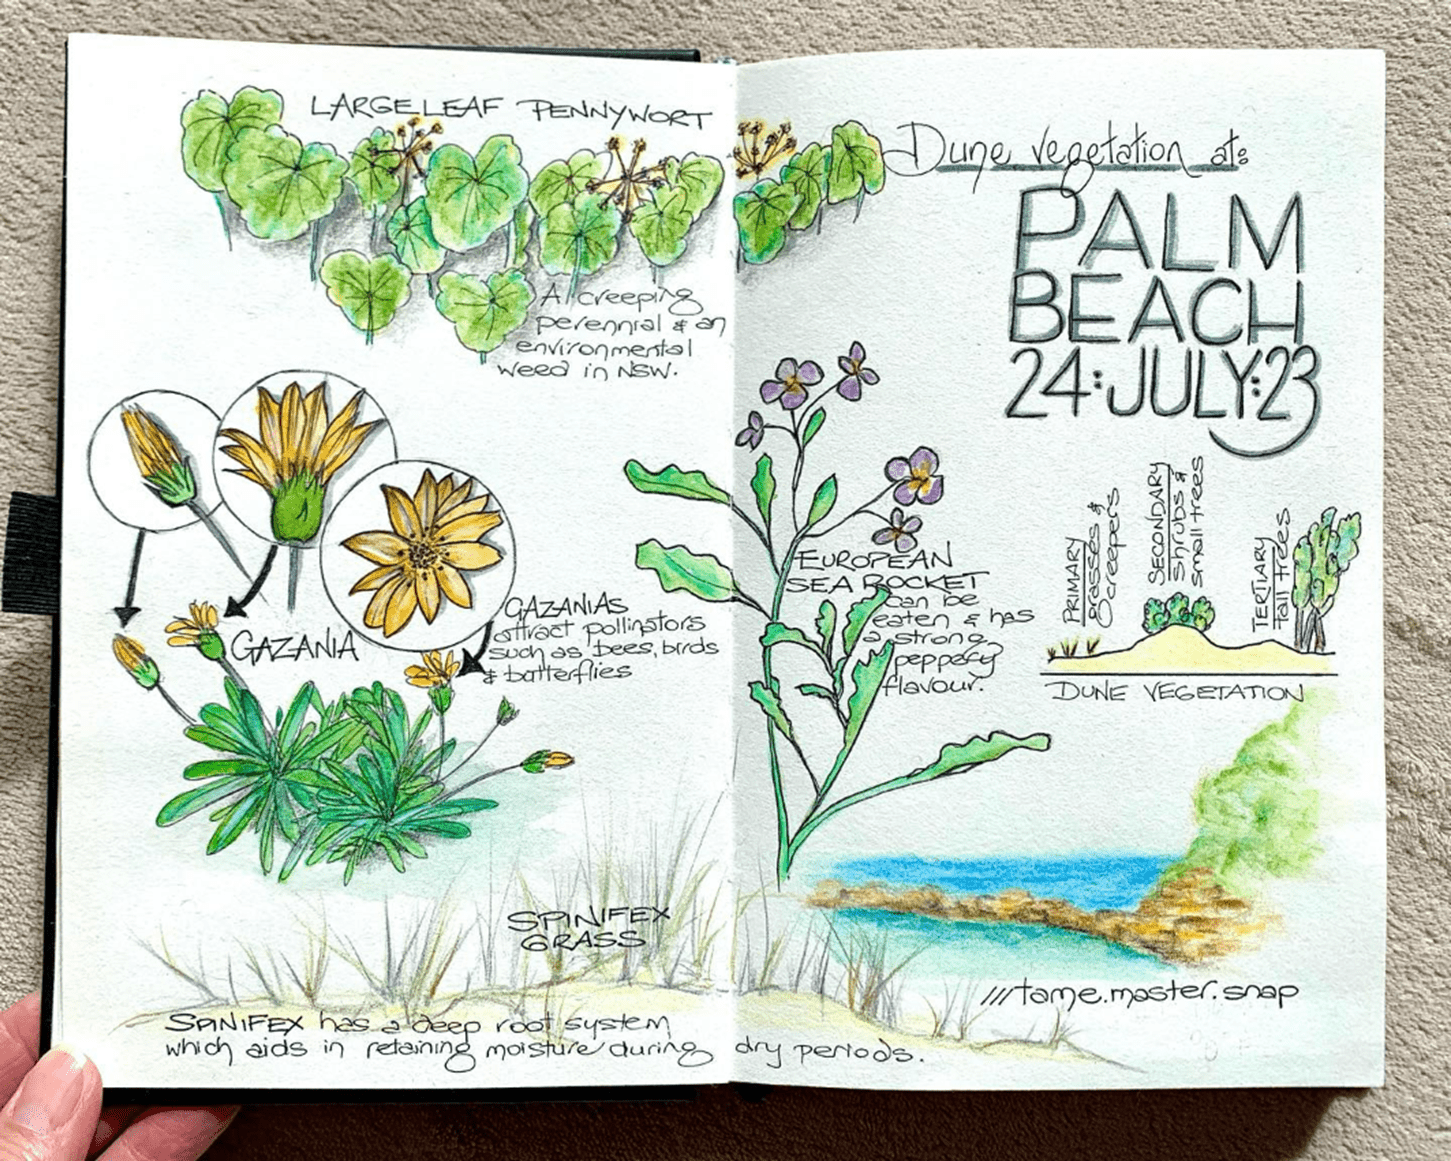 LARGELEAF PENNYWORT
A creeping
perennial & an
environmental
weed in NSW.
GAZANIA
GAZANIAS
attract pollinators
such as bees, birds
& butterflies
SPINIFEX
GRASS
SPINIFEX has a deep root system,
which aids in retaining moisture during dry periods.
Dune vegetation at:
PALM
BEACH
24:JULY:23
EUROPEAN
SEA ROCKET
can be
eaten & has
a strong
peppery
flavour.
PRIMARY
grasses &
creepers
SECONDARY
shrubs &
small trees
TERTIARY
tall trees
DUNE VEGETATION
///tame.master.snap